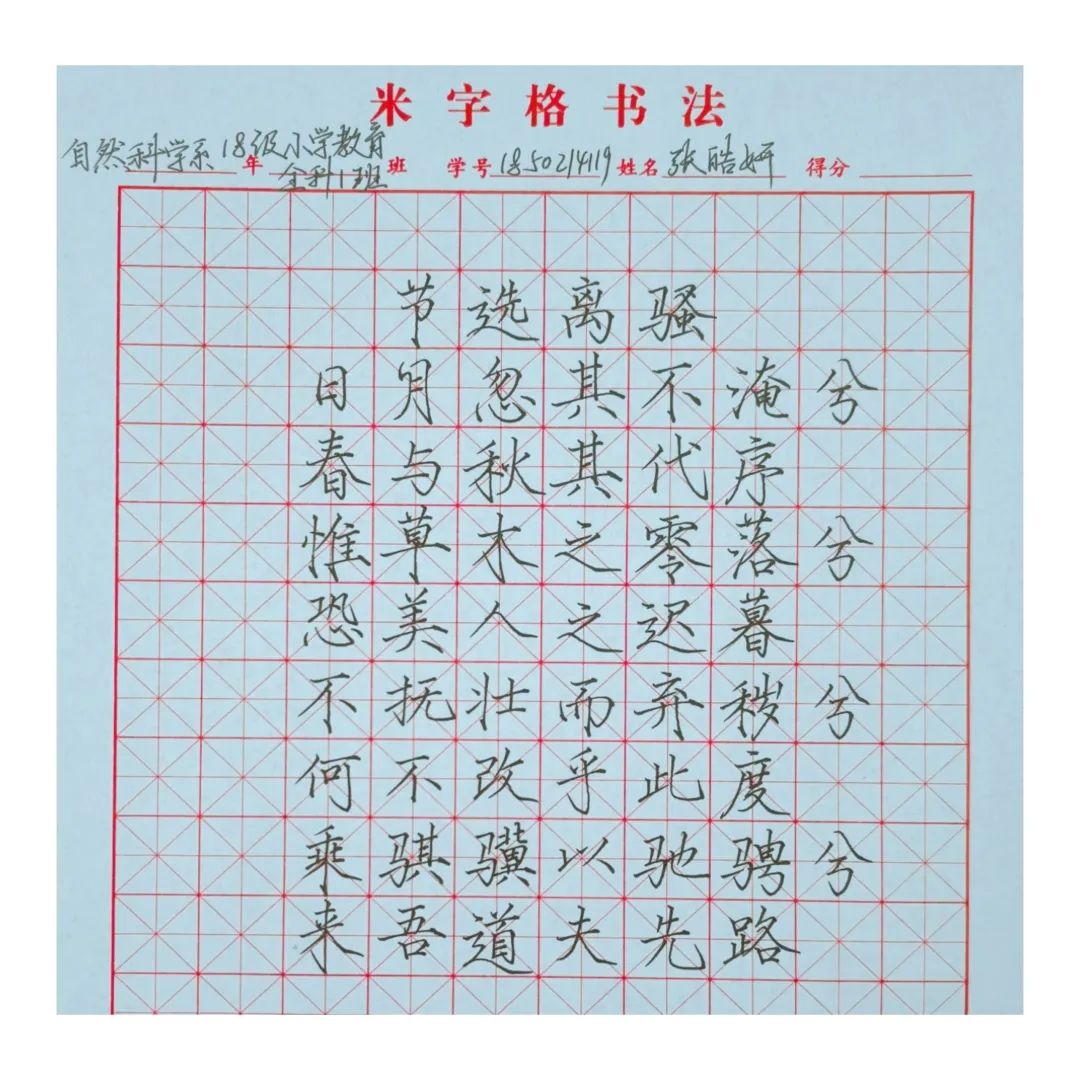 米字格书法
自然科学系 年 18级小学教育
全科1班 班 学号 1850214119 姓名 张皓妍 得分
节选离骚
日月忽其不淹兮
春与秋其代序
惟草木之零落兮
恐美人之迟暮
不抚壮而弃秽兮
何不改乎此度
乘骐骥以驰骋兮
来吾道夫先路